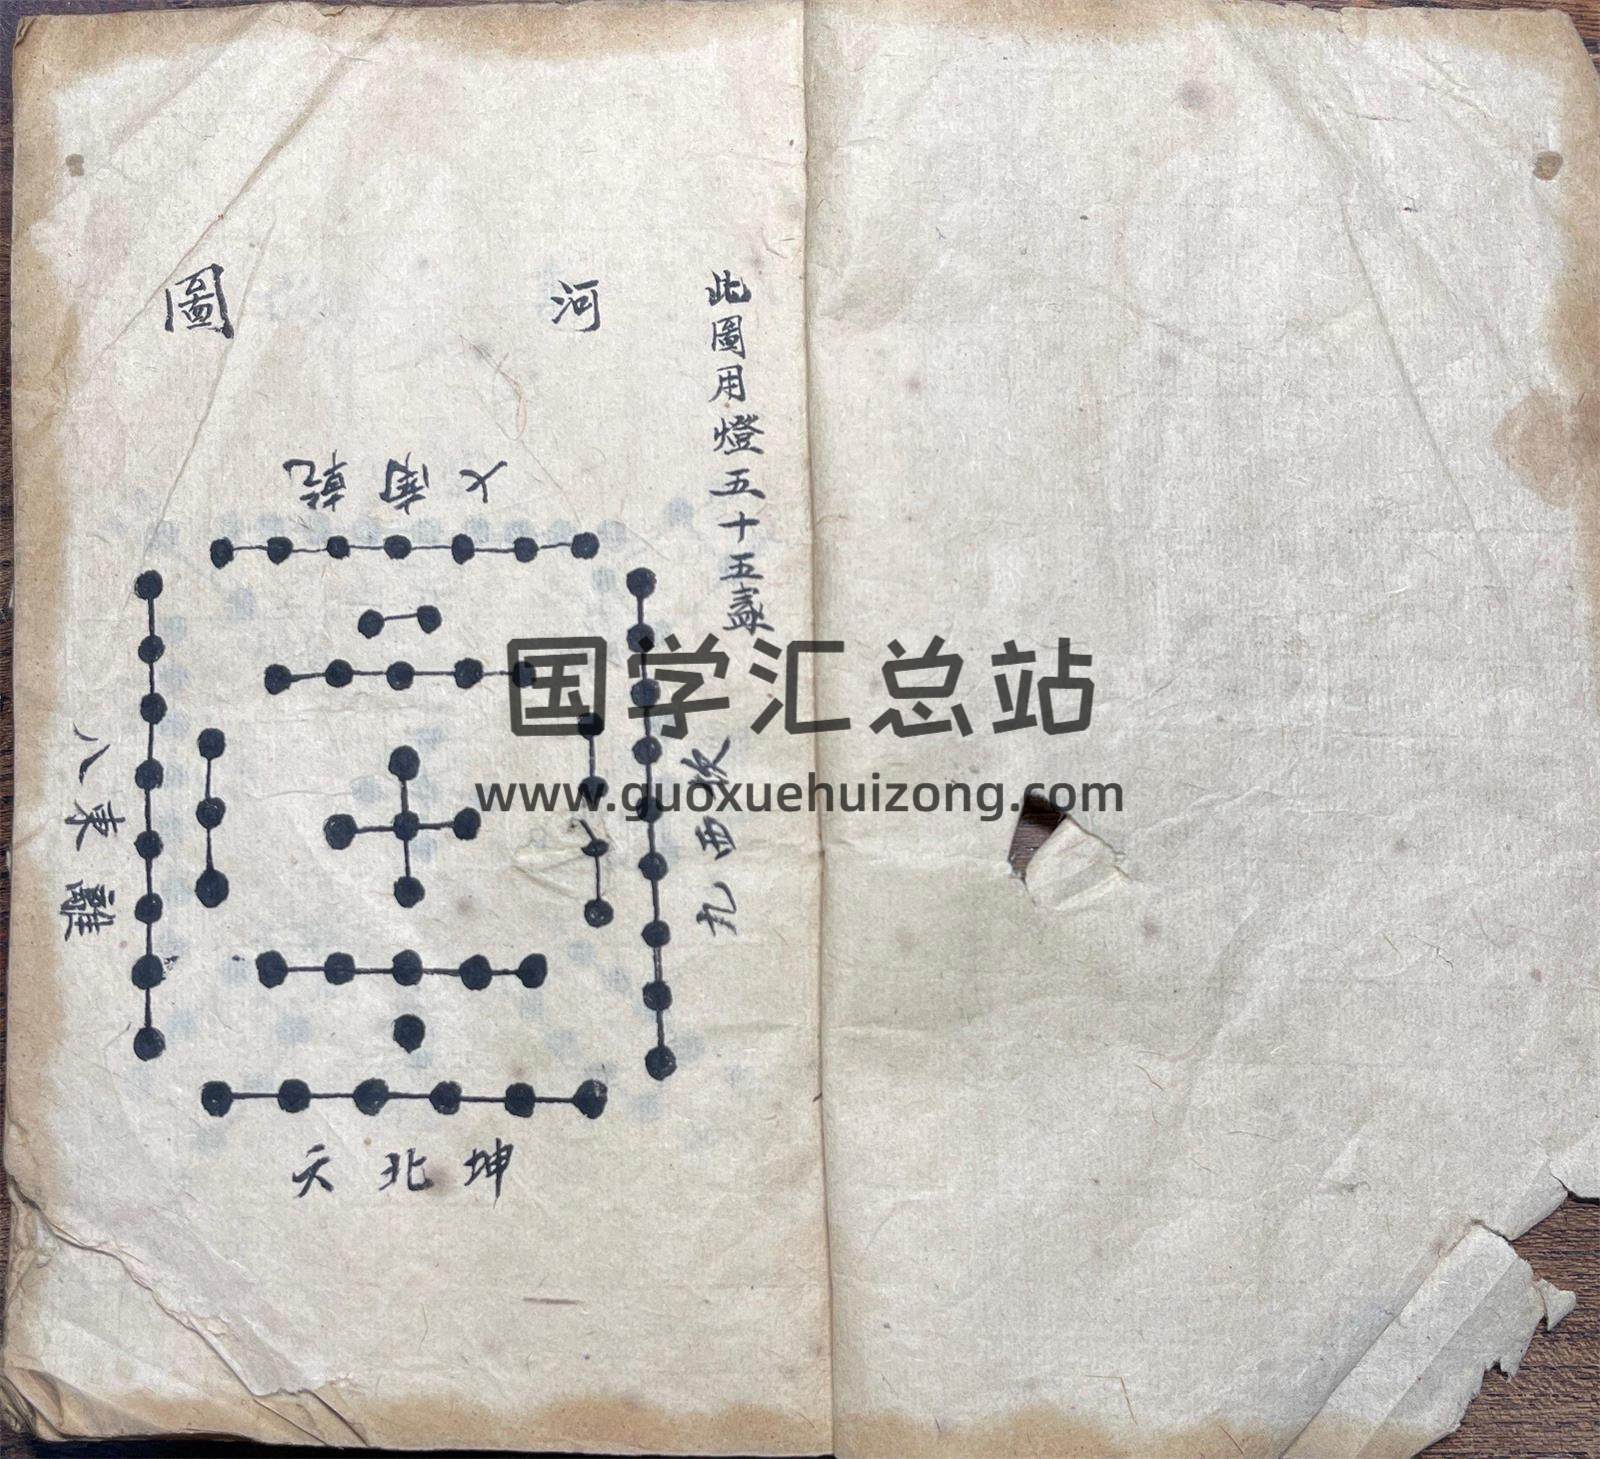 此圖用燈五十五盞
河 圖
七南乾
九西坎
八東離
六北坤
国学汇总站
www.guoxuehuizong.com